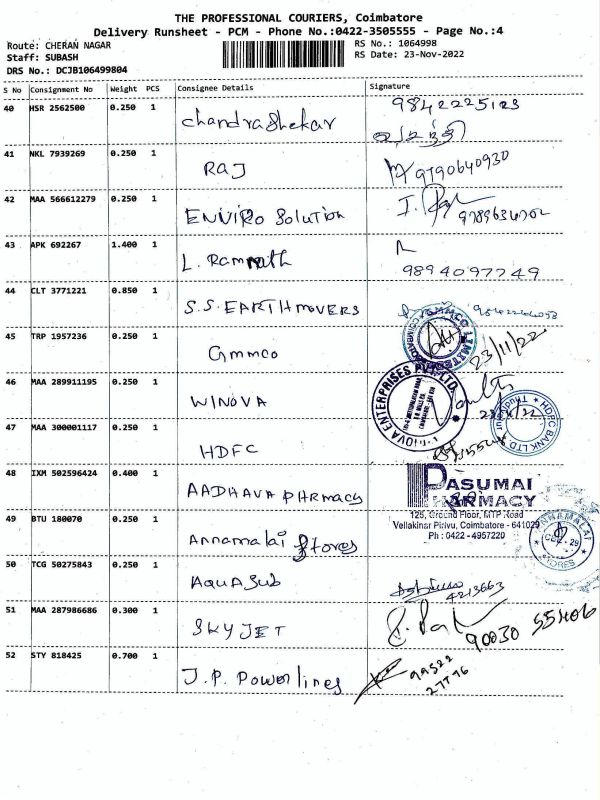 THE PROFESSIONAL COURIERS, Coimbatore
Delivery Runsheet - PCM - Phone No.:0422-3505555 - Page No.:4
Route: CHERAN NAGAR RS No.: 1064998
Staff: SUBASH RS Date: 23-Nov-2022
DRS No.: DCJB106499804
S No Consignment No Weight PCS Consignee Details Signature
40 HSR 2562500 0.250 1 Chandrashekar 9842225123
41 NKL 7939269 0.250 1 RAJ 9790640930
42 MAA 566612279 0.250 1 ENVIRO Solution
43 APK 692267 1.400 1 L. Ramnath 9894097749
44 CLT 3771221 0.850 1 S.S. EARTHMOVERS
45 TRP 1957236 0.250 1 Gmmco 23/11/22
46 MAA 289911195 0.250 1 WINOVA
47 MAA 300001117 0.250 1 HDFC
HDFC BANK LTD.
48 IXM 502596424 0.400 1 AADHAVA PHRMACY
PASUMAI
PHARMACY
125, Ground Floor, MTP Road
Vellakinar Pirivu, Coimbatore - 641029
Ph : 0422 - 4957220
49 BTU 180070 0.250 1 Annamalai Stores
ANNAMALAI STORES
50 TCG 50275843 0.250 1 AQUASUB 4213663
51 MAA 287986686 0.300 1 SKYJET 90030 55406
52 STY 818425 0.700 1 J.P. Powerlines 99522
27776